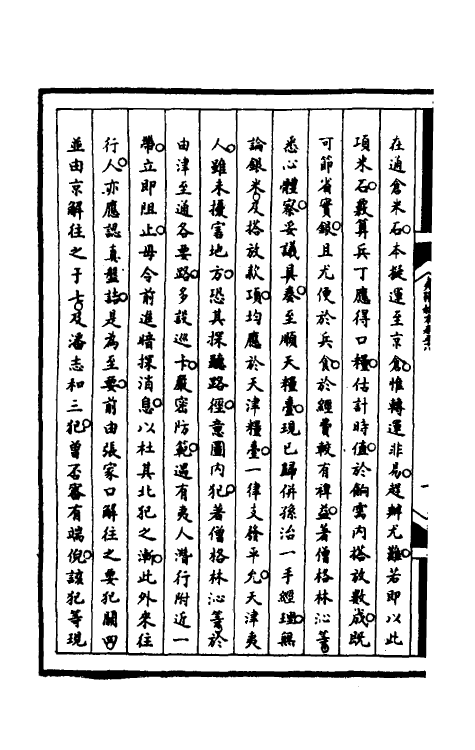 在通倉米石本擬運至京倉惟轉運非易趕辦尤難若即以此
項米石覈算兵丁應得口糧估計時值於餉需內搭放數成既
可節省實銀且尤便於兵食於經費較有裨益著僧格林沁等
悉心體察妥議具奏至順天糧臺現已歸併孫治一手經理無
論銀米及搭放款項均應於天津糧臺一律支發平允天津夷
人雖未擾害地方恐其探聽路徑意圖內犯著僧格林沁等於
由津至通各要路多設巡卡嚴密防範遇有夷人潛行附近一
帶立即阻止毋令前進暗探消息以杜其北犯之漸此外來往
行人亦應認真盤詰是為至要前由張家口解往之要犯關四
並由京解往之于七及潘志和三犯曾否審有端倪該犯等現